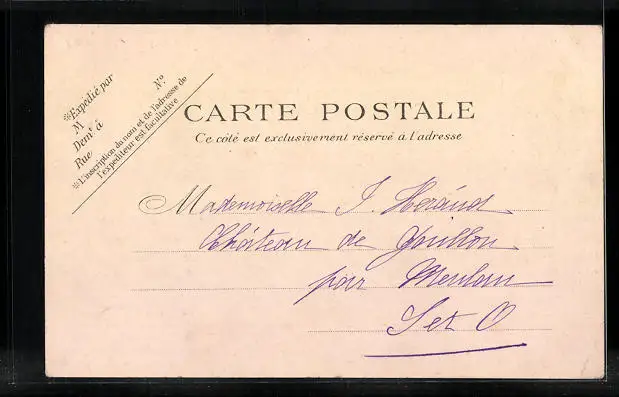 *Expédié par
M
Demt à
Rue
N°
*L'inscription du nom et de l'adresse de
l'expéditeur est facultative
CARTE POSTALE
Ce côté est exclusivement réservé à l'adresse
Mademoiselle J.
Château de
par Meulan
S et O